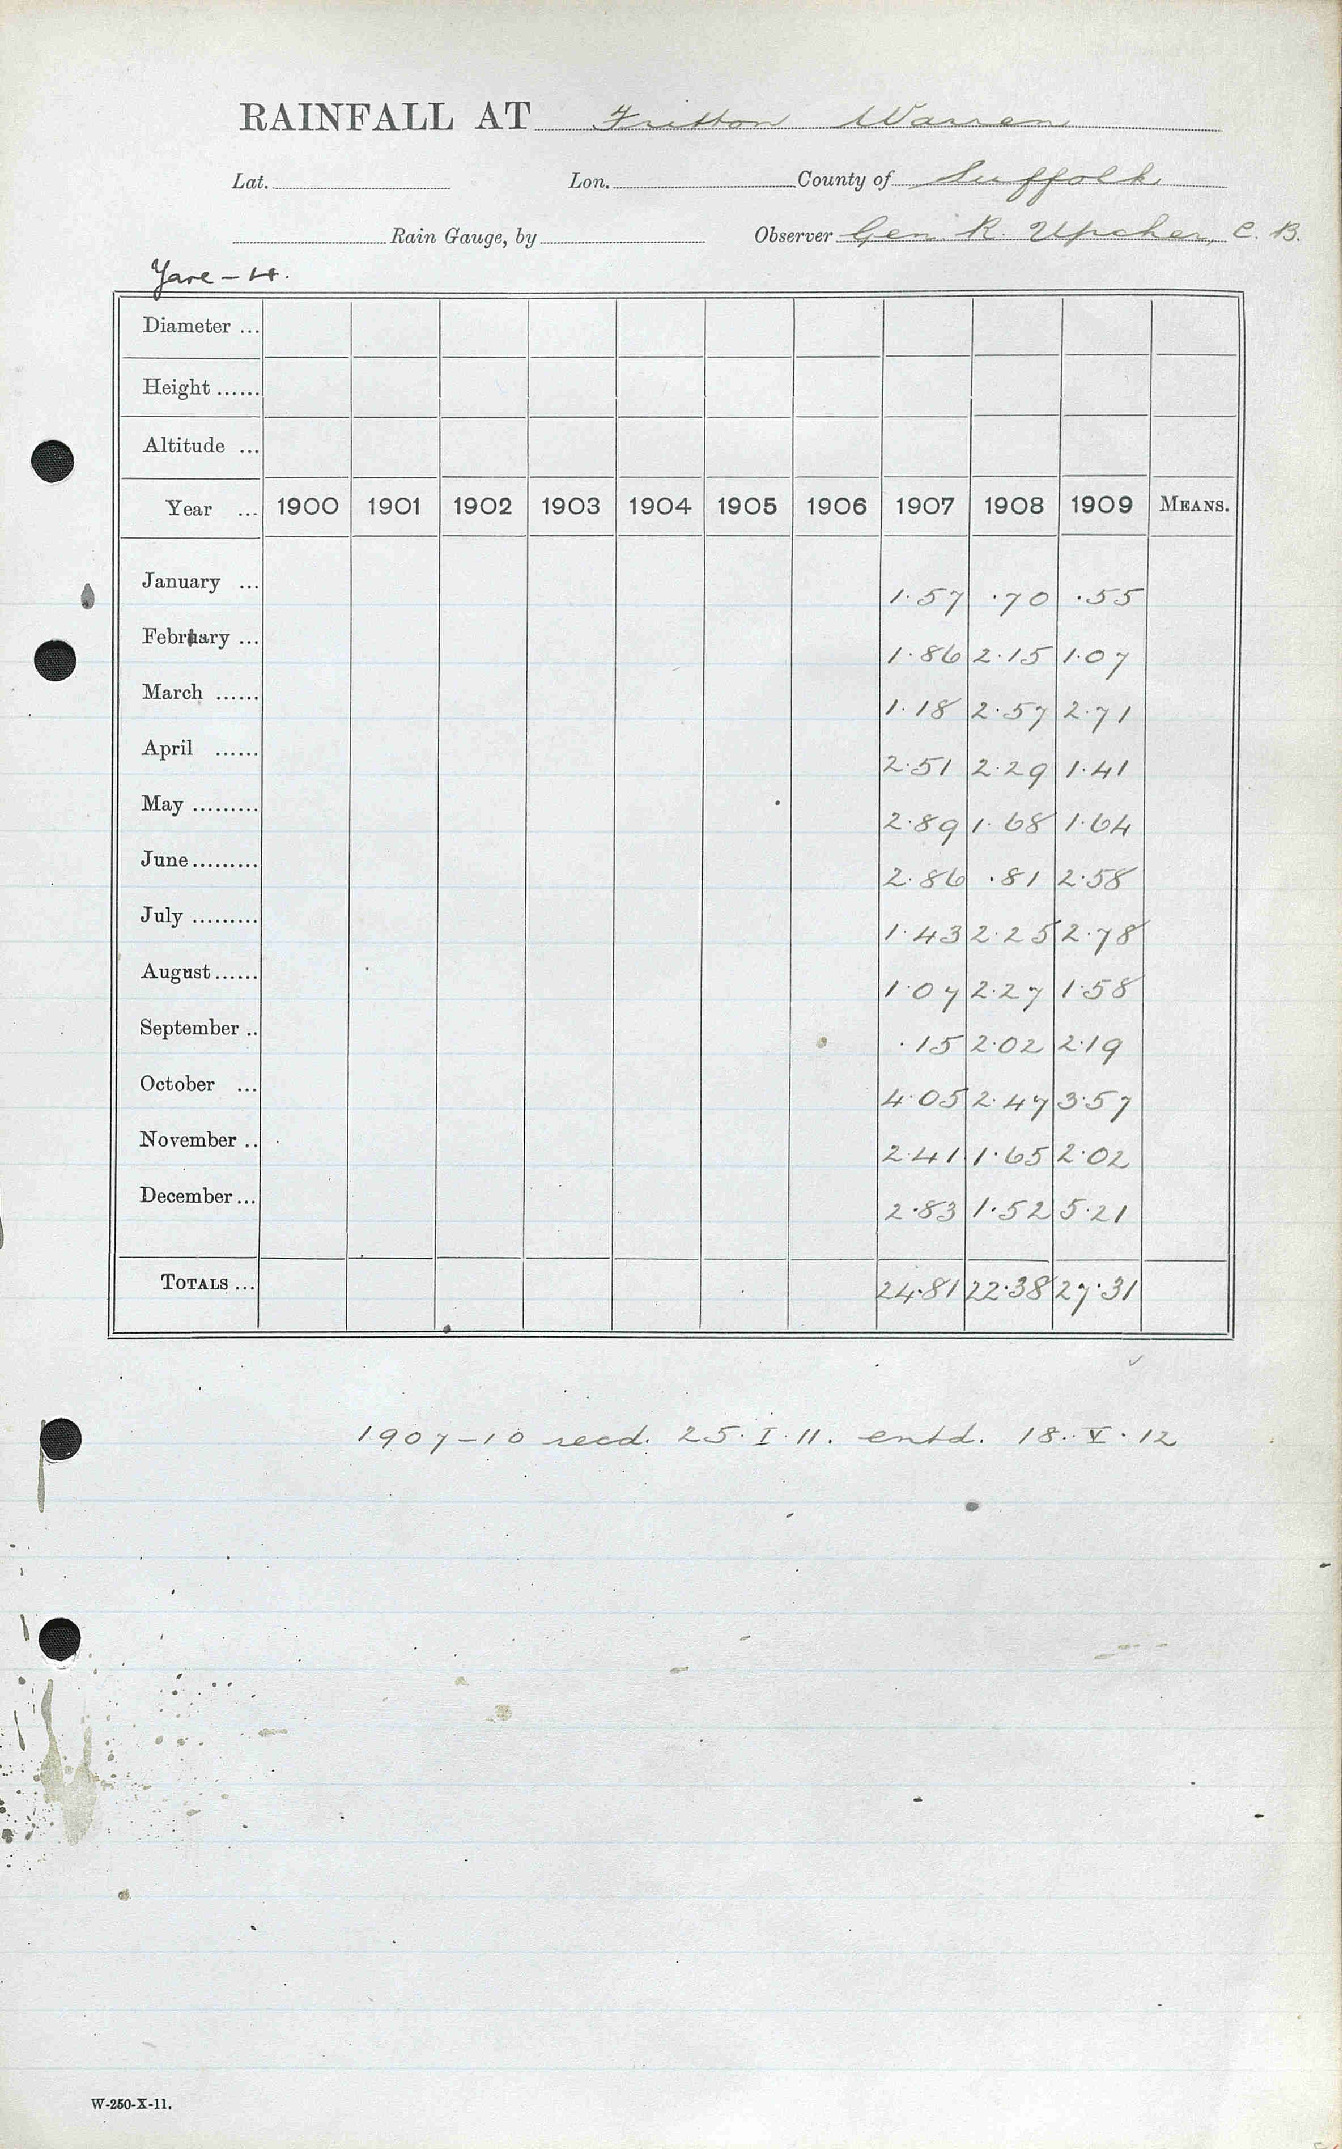 RAINFALL AT Fritton Warren
Lat. Lon. County of Suffolk
Rain Gauge, by Observer Gen. R. Upcher, C. B.
Yare - 4.
Diameter ...
Height ......
Altitude ...
Year ... 1900 1901 1902 1903 1904 1905 1906 1907 1908 1909 MEANS.
January ... 1.57 .70 .55
February ... 1.86 2.15 1.07
March ...... 1.18 2.57 2.71
April ...... 2.51 2.29 1.41
May ......... 2.89 1.68 1.64
June ......... 2.86 .81 2.58
July ......... 1.43 2.25 2.78
August ...... 1.07 2.27 1.58
September .. .15 2.02 2.19
October ... 4.05 2.47 3.57
November .. 2.41 1.65 2.02
December ... 2.83 1.52 5.21
TOTALS ... 24.81 22.38 27.31
1907-10 recd. 25.I.11. entd. 18.V.12
W-250-X-11.